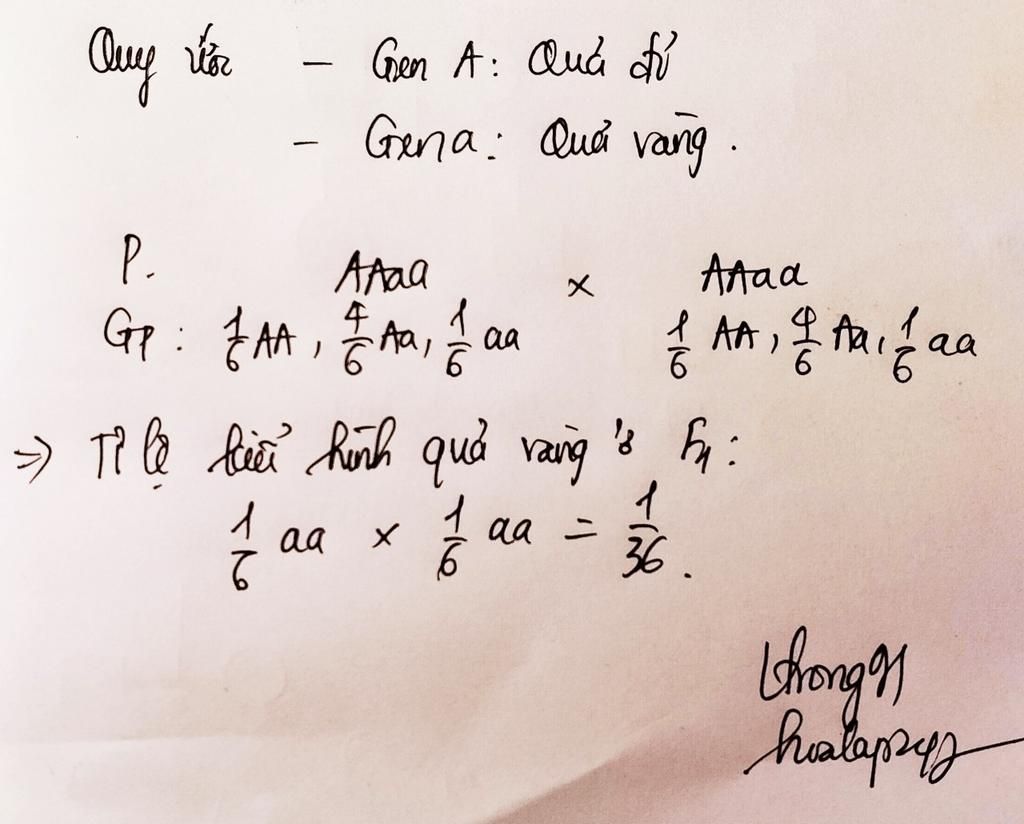 Quy ước - Gen A: Quả đỏ
- Gen a: Quả vàng.
P. AAaa x AAaa
Gp: 1/6 AA, 4/6 Aa, 1/6 aa 1/6 AA, 4/6 Aa, 1/6 aa
=> Tỉ lệ kiểu hình quả vàng ở F1:
1/6 aa x 1/6 aa = 1/36.